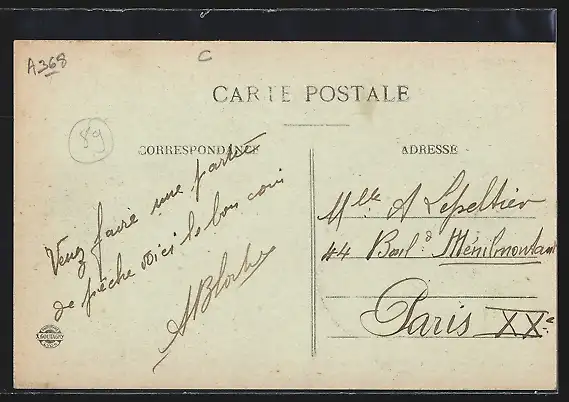 A368
C
CARTE POSTALE
89
CORRESPONDANCE
ADRESSE
Venez faire une partie
de pêche voici le bon coin
Mlle A Lepeltier
44 Boul.d Ménilmontant
Paris XXe